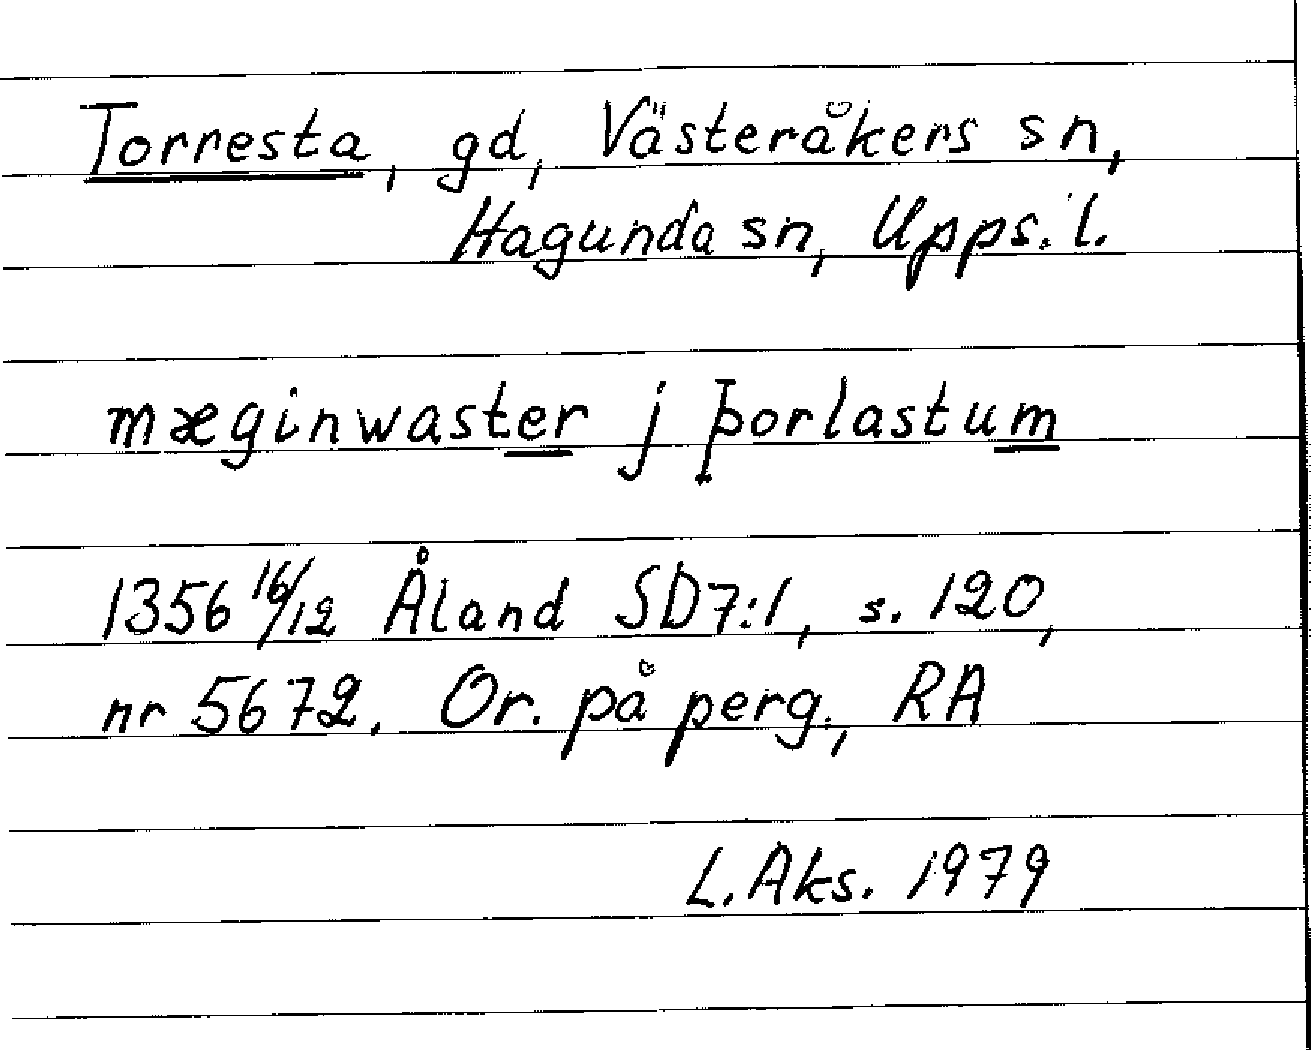 Torresta, gd, Västeråkers sn,
Hagunda sn, Upps. l.
mæginwaster j þorlastum
1356 16/12 Åland SD7:1, s. 120,
nr 5672. Or. på perg., RA
L. Aks. 1979